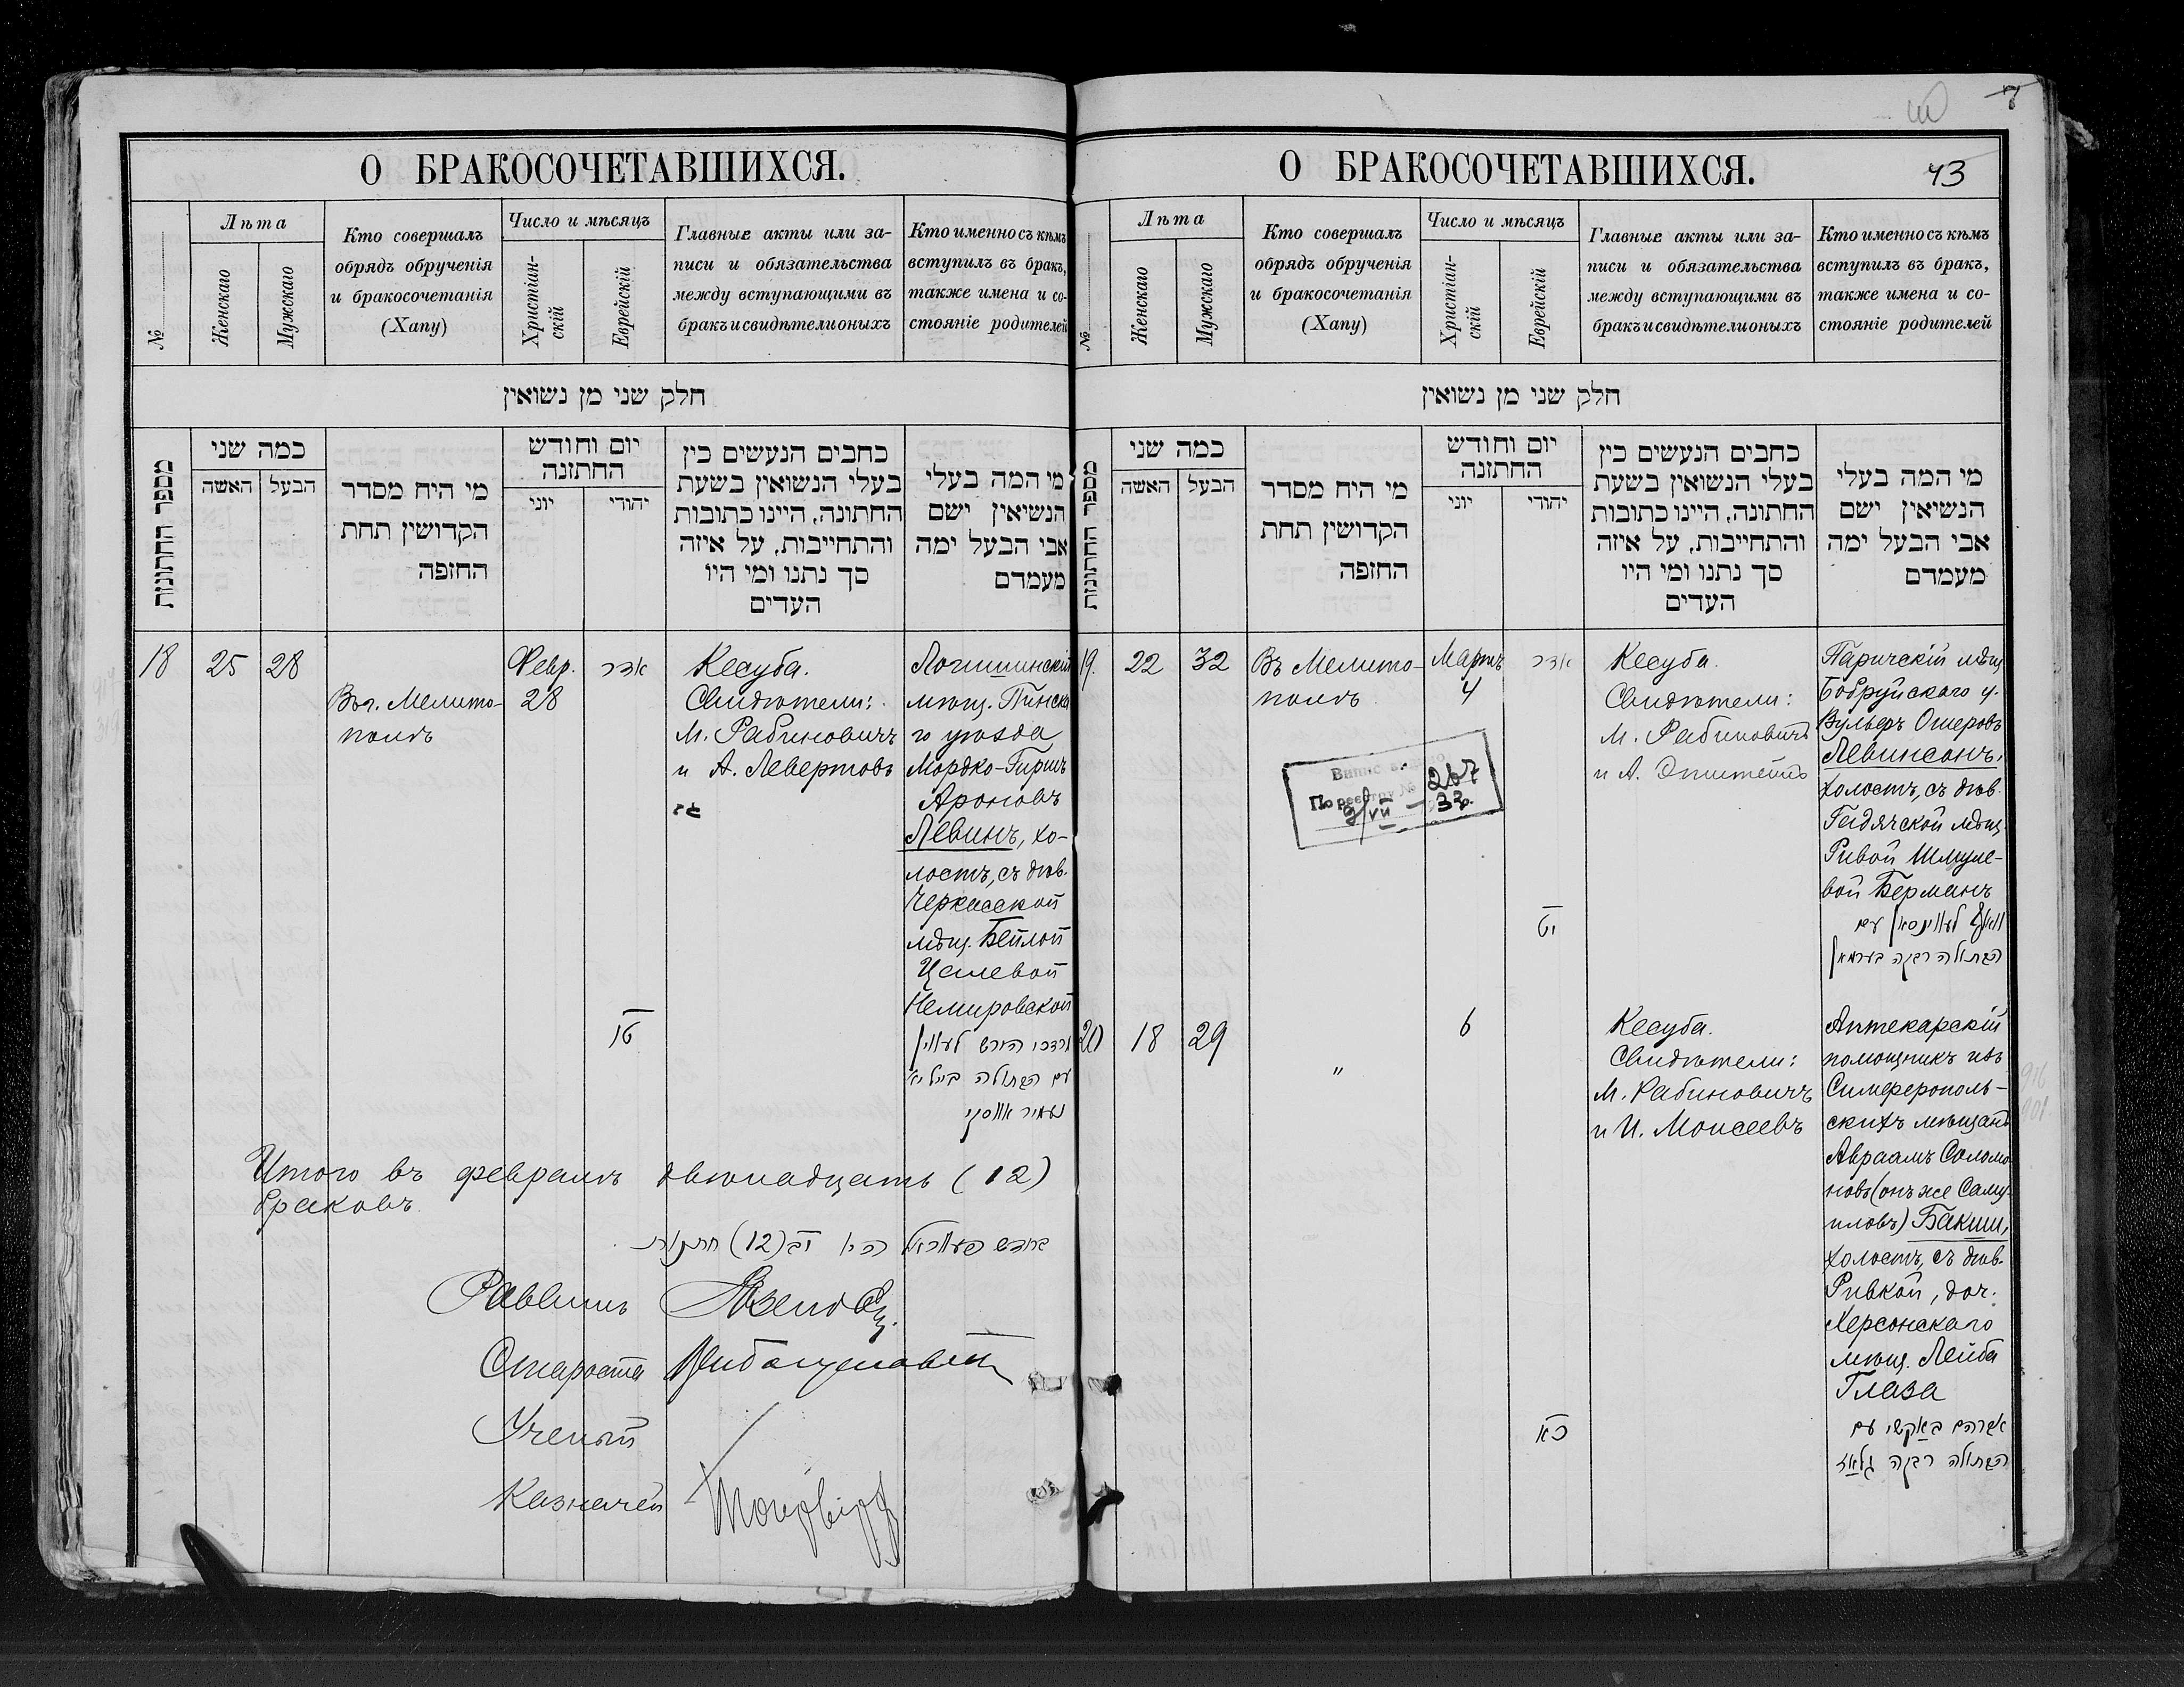 О БРАКОСОЧЕТАВШИХСЯ.
№
Лѣта
Женскаго
Мужскаго
Кто совершалъ
обрядъ обрученія
и бракосочетанія
(Хапу)
Число и мѣсяцъ
Христіан-
скій
Еврейскій
Главные акты или за-
писи и обязательства
между вступающими въ
бракъ и свидѣтели оныхъ
Кто именно съ кѣмъ
вступилъ въ бракъ,
также имена и со-
стояніе родителей
חלק שני מן נשואין
מספר החתונות
כמה שני
האשה
הבעל
מי היח מסדר
הקדושין תחת
החופה
יום וחודש
החתונה
יוני
יהודי
כחבים הנעשים כין
בעלי הנשואין בשעת
החתונה, היינו כתובות
והתחייבות, על איזה
סך נתנו ומי היו
העדים
מי המה בעלי
הנשיאין ישם
אבי הבעל ימה
מעמדם
18
25
28
Въ г. Мелито-
полѣ
Февр.
28
אדר
טז
Кесуба.
Свидѣтели:
М. Рабиновичъ
и А. Левертовъ
Логишинскій
мѣщ. Пинска
го уѣзда
Мордко-Гиршъ
Ароновъ
Левинъ, хо-
лостъ, съ дѣв.
Черкасской
мѣщ. Бейлой
Цалевой
Немировской
מרדכי הירש לעווין
עם הבתולה ביילא
Итого въ февралѣ двѣнадцать (12)
браковъ.
Раввинъ
Староста
Ученый
Казначей
О БРАКОСОЧЕТАВШИХСЯ.
43
№
Лѣта
Женскаго
Мужскаго
Кто совершалъ
обрядъ обрученія
и бракосочетанія
(Хапу)
Число и мѣсяцъ
Христіан-
скій
Еврейскій
Главные акты или за-
писи и обязательства
между вступающими въ
бракъ и свидѣтели оныхъ
Кто именно съ кѣмъ
вступилъ въ бракъ,
также имена и со-
стояніе родителей
חלק שני מן נשואין
מספר החתונות
כמה שני
האשה
הבעל
מי היח מסדר
הקדושין תחת
החופה
יום וחודש
החתונה
יוני
יהודי
כחבים הנעשים כין
בעלי הנשואין בשעת
החתונה, היינו כתובות
והתחייבות, על איזה
סך נתנו ומי היו
העדים
מי המה בעלי
הנשיאין ישם
אבי הבעל ימה
מעמדם
19.
22
32
Въ Мелито-
полѣ
Мартъ
4
אדר
יט
По реестру № 267
Кесуба.
Свидѣтели:
М. Рабиновичъ
и А. Эпштейнъ
Паричскій мѣщ
Бобруйскаго у.
Вульфъ Ошеровъ
Левинсонъ,
холостъ, съ дѣв.
Гадячской мѣщ.
Ривой Шмуле-
вой Берманъ
וואלף לעווינסאן עם
הבתולה רבקה בערמאן
20
18
29
"
6
כא
Кесуба.
Свидѣтели:
М. Рабиновичъ
и И. Моисеевъ
Аптекарскій
помощникъ изъ
Симферополь-
скихъ мѣщанъ
Авраамъ Соломо-
новъ (онъ же Саму-
иловъ) Бакши,
холостъ, съ дѣв.
Ривкой, доч.
Херсонскаго
мѣщ. Лейба
Глаза
אברהם באקשי עם
הבתולה רבקה גלאז